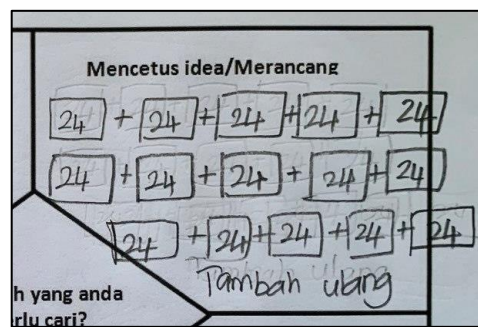 Mencetus idea/Merancang
24 + 24 + 24 + 24 + 24
24 + 24 + 24 + 24 + 24
24 + 24 + 24 + 24 + 24
Tambah ulang
h yang anda
rlu cari?